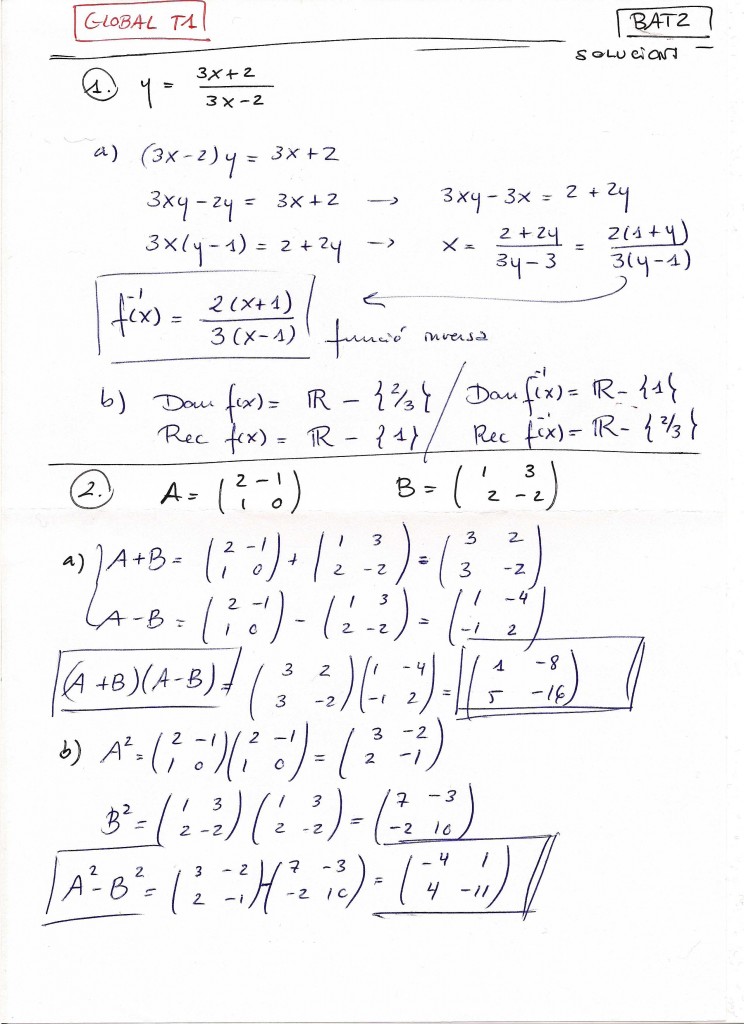 GLOBAL T1
BAT2
SOLUCIONS
1. y = (3x+2)/(3x-2)
a) (3x-2)y = 3x+2
3xy-2y = 3x+2 → 3xy-3x = 2+2y
3x(y-1) = 2+2y → x = (2+2y)/(3y-3) = 2(1+y)/3(y-1)
f⁻¹(x) = 2(x+1)/3(x-1) funció inversa
b) Dom f(x) = ℝ - {2/3} / Dom f⁻¹(x) = ℝ - {1}
Rec f(x) = ℝ - {1} / Rec f⁻¹(x) = ℝ - {2/3}
2. A = (2 -1; 1 0) B = (1 3; 2 -2)
a) A+B = (2 -1; 1 0) + (1 3; 2 -2) = (3 2; 3 -2)
A-B = (2 -1; 1 0) - (1 3; 2 -2) = (1 -4; -1 2)
(A+B)(A-B) = (3 2; 3 -2)(1 -4; -1 2) = (1 -8; 5 -16)
b) A² = (2 -1; 1 0)(2 -1; 1 0) = (3 -2; 2 -1)
B² = (1 3; 2 -2)(1 3; 2 -2) = (7 -3; -2 10)
A²-B² = (3 -2; 2 -1) - (7 -3; -2 10) = (-4 1; 4 -11)